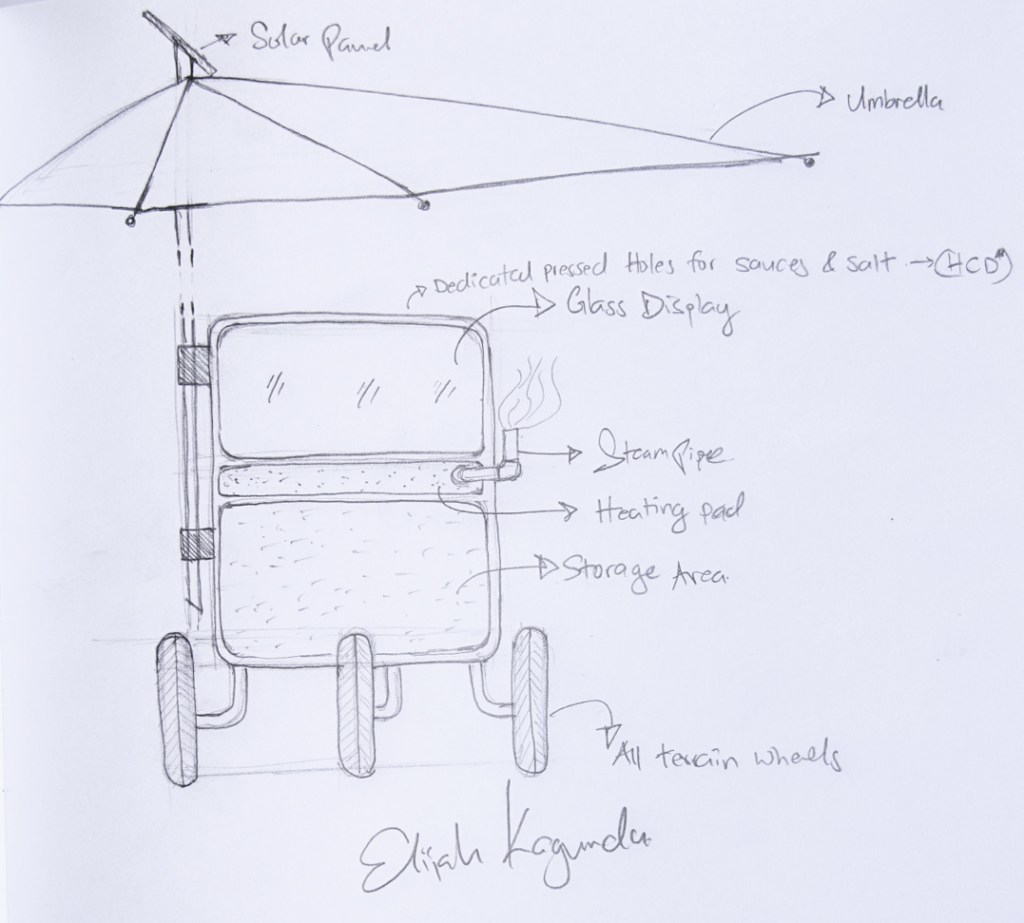 Solar Pannel
Umbrella
Dedicated pressed Holes for sauces & salt → HCD*
Glass Display
Steam Pipe
Heating pad
Storage Area.
All terrain wheels
Elijah Kagunda